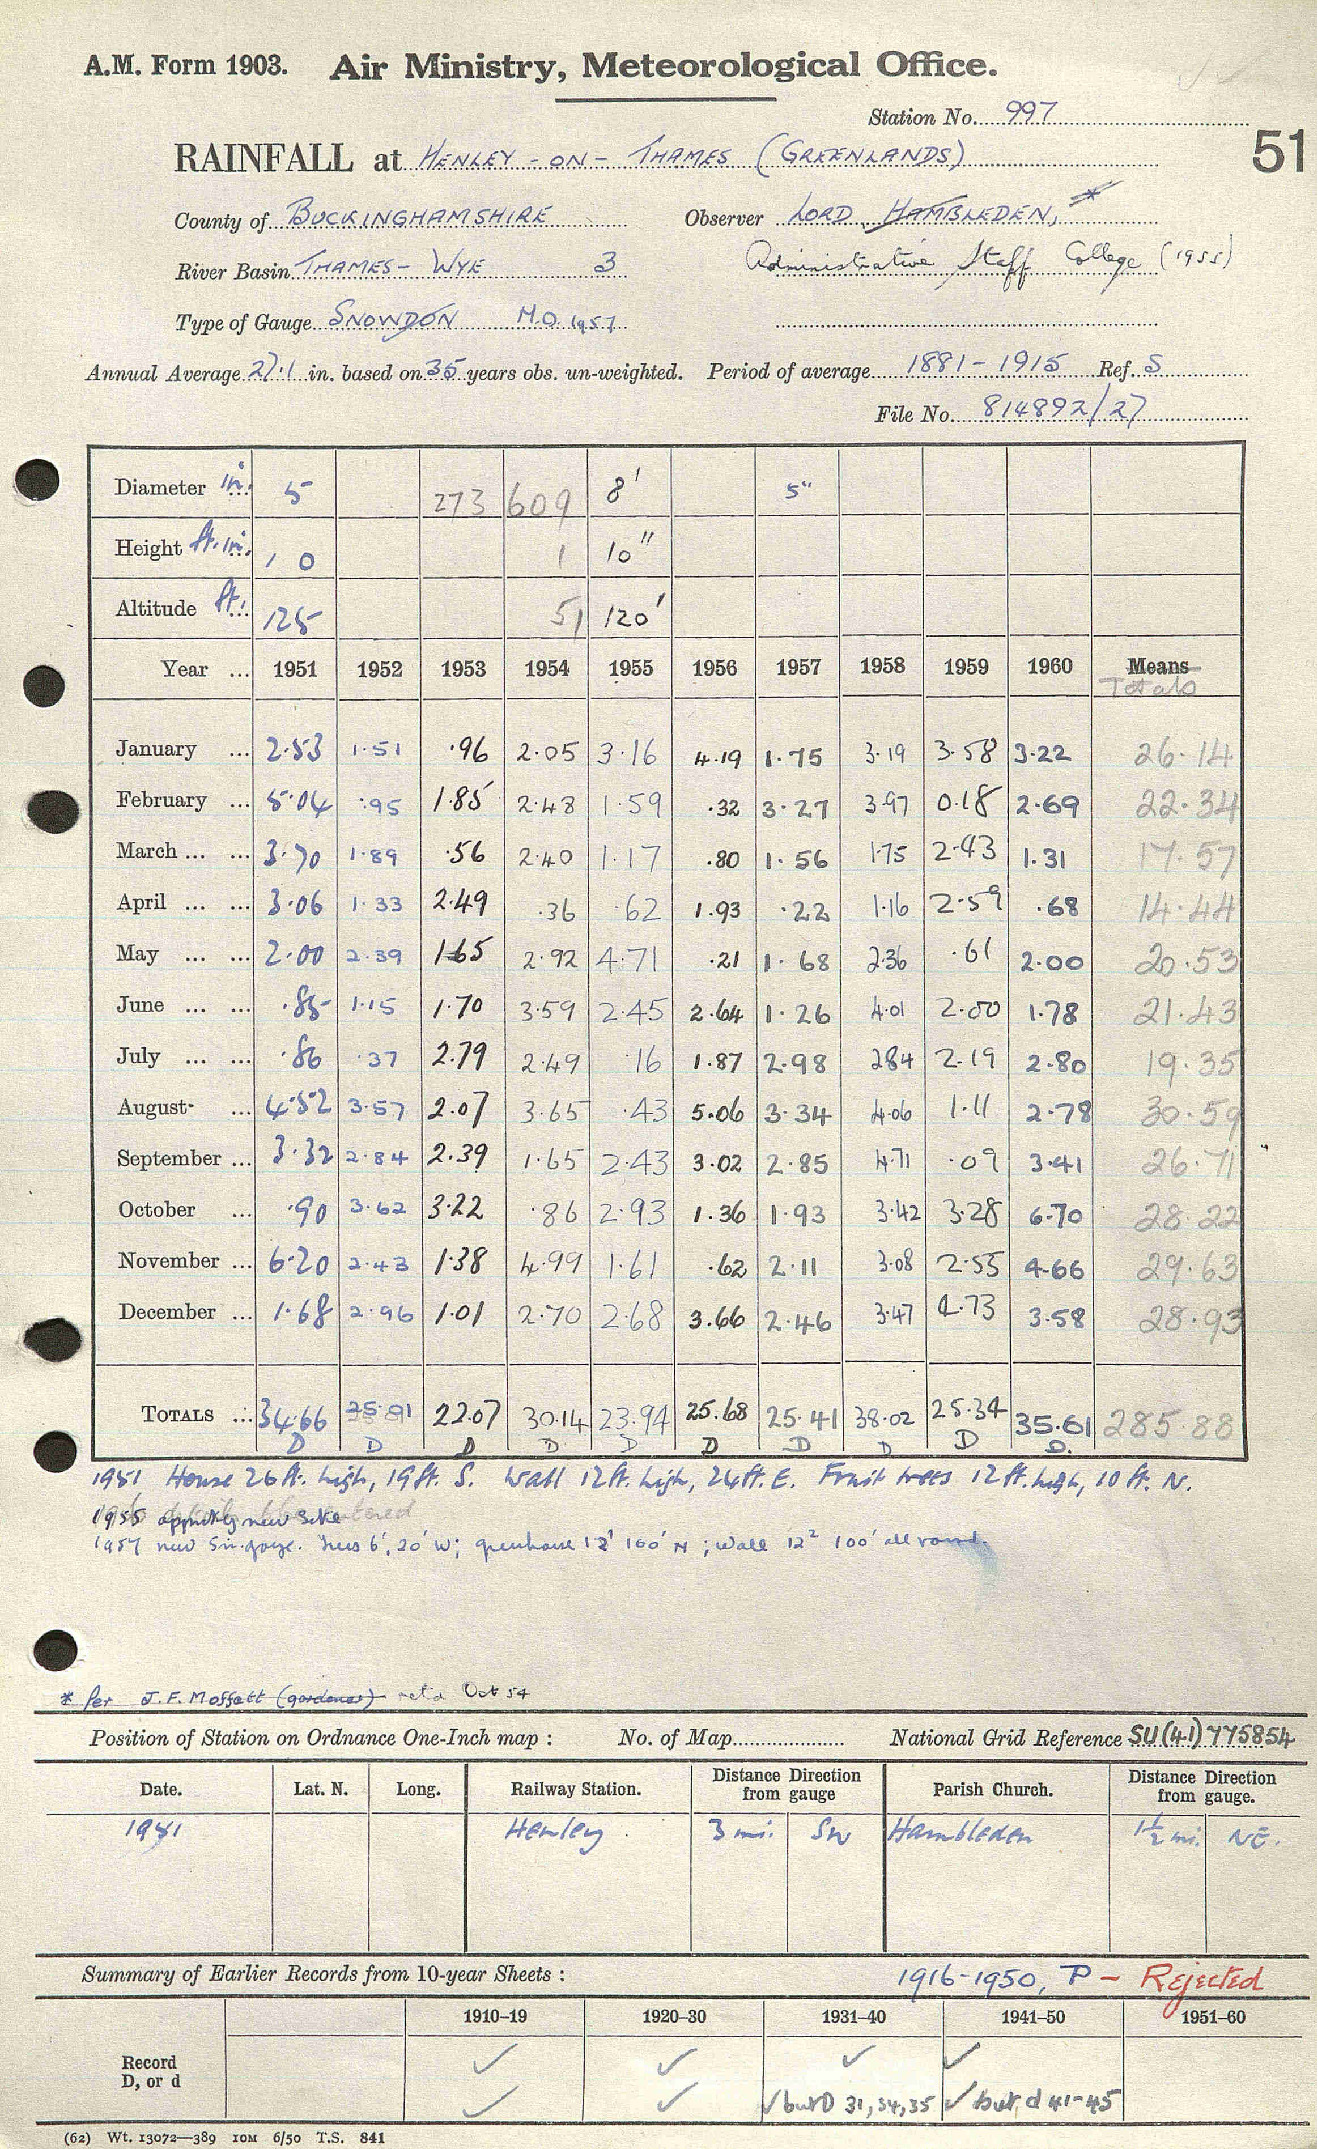 A.M. Form 1903. Air Ministry, Meteorological Office.
Station No. 997
51
RAINFALL at HENLEY-ON-THAMES (GREENLANDS)
County of BUCKINGHAMSHIRE Observer LORD HAMBLEDEN, *
River Basin THAMES-WYE 3 Administrative Staff College (1955)
Type of Gauge SNOWDON M.O. 1957
Annual Average 27.1 in. based on 35 years obs. un-weighted. Period of average 1881-1915 Ref. S
File No. 814892/27
Diameter in. 5 273 609 8' 5"
Height ft. in. 1 0 1 10"
Altitude ft. 125 51 120'
Year ... 1951 1952 1953 1954 1955 1956 1957 1958 1959 1960 Means Totals
January ... 2.53 1.51 .96 2.05 3.16 4.19 1.75 3.19 3.58 3.22 26.14
February ... 5.04 .95 1.85 2.48 1.59 .32 3.27 3.97 0.18 2.69 22.34
March ... ... 3.70 1.89 .56 2.40 1.17 .80 1.56 1.75 2.43 1.31 17.57
April ... ... 3.06 1.33 2.49 .36 .62 1.93 .22 1.16 2.59 .68 14.44
May ... ... 2.00 2.39 1.65 2.92 4.71 .21 1.68 2.36 .61 2.00 20.53
June ... ... .85 1.15 1.70 3.59 2.45 2.64 1.26 4.01 2.00 1.78 21.43
July ... ... .86 .37 2.79 2.49 .16 1.87 2.98 2.84 2.19 2.80 19.35
August ... 4.52 3.57 2.07 3.65 .43 5.06 3.34 4.06 1.11 2.78 30.59
September ... 3.32 2.84 2.39 1.65 2.43 3.02 2.85 4.71 .09 3.41 26.71
October ... .90 3.62 3.22 .86 2.93 1.36 1.93 3.42 3.28 6.70 28.22
November ... 6.20 2.43 1.38 4.99 1.61 .62 2.11 3.08 2.55 4.66 29.63
December ... 1.68 2.96 1.01 2.70 2.68 3.66 2.46 3.47 4.73 3.58 28.93
TOTALS ... 34.66 25.01 22.07 30.14 23.94 25.68 25.41 38.02 25.34 35.61 285.88
D D D D D D D D D D.
1951 House 26ft. high, 19ft. S. Wall 12ft. high, 24ft. E. Fruit trees 12ft. high, 10ft. N.
1955 new site
1957 new Sn. gauge. Trees 6', 20' W; greenhouse 12' 160' N; wall 12' 100' all round.
* Per J.F. Moffatt (gardener) ret'd Oct 54
Position of Station on Ordnance One-Inch map : No. of Map National Grid Reference SU(41)775854
Date. Lat. N. Long. Railway Station. Distance Direction from gauge Parish Church. Distance Direction from gauge.
1951 Henley 3 mi. SW Hambleden 1½ mi. NE.
Summary of Earlier Records from 10-year Sheets : 1916-1950, P - Rejected
1910-19 1920-30 1931-40 1941-50 1951-60
Record ✓ ✓ ✓ ✓
D, or d ✓ ✓ ✓ but D 31,34,35 ✓ but d 41-45
(62) Wt. 13072—389 10M 6/50 T.S. 841